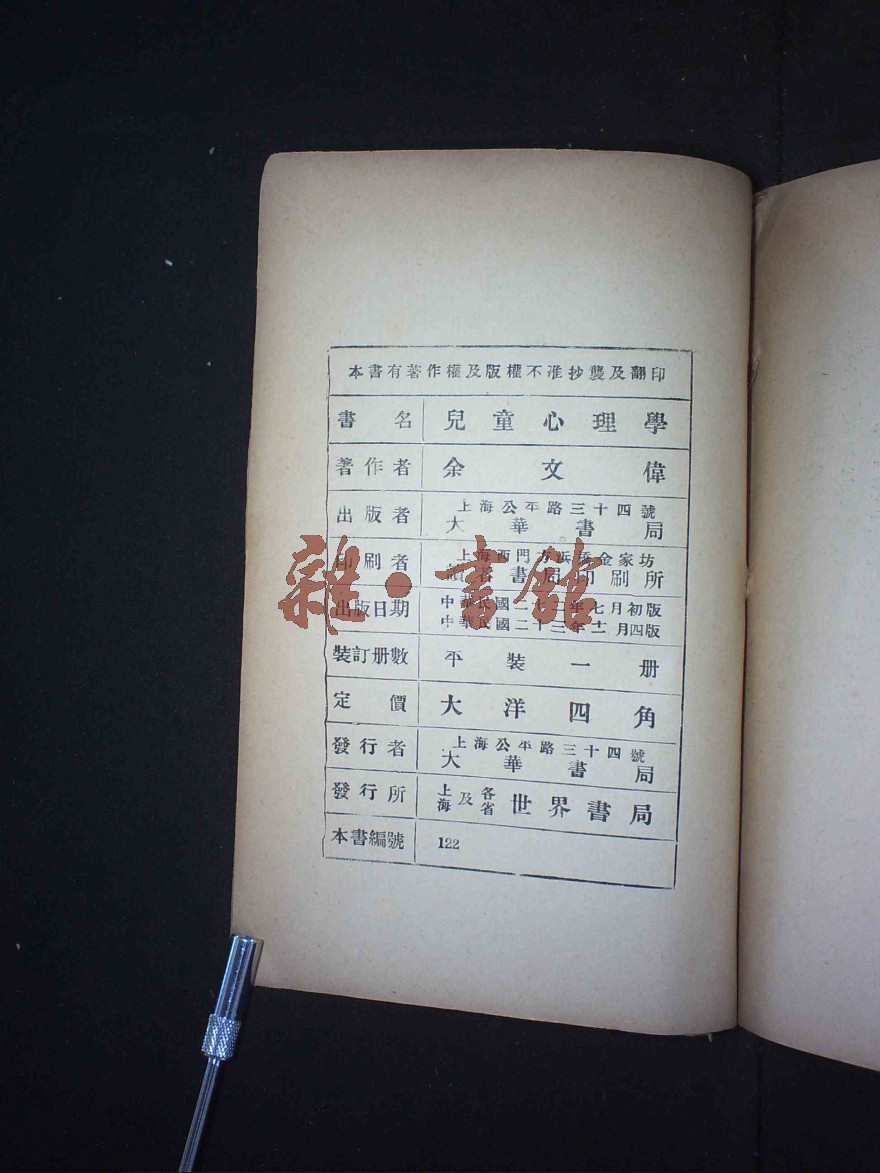 本書有著作權及版權不准抄襲及翻印
書名 兒童心理學
著作者 余文偉
出版者 上海公平路三十四號
大華書局
印刷者 上海西門方浜橋金家坊
讀者書局印刷所
出版日期 中華民國二十年七月初版
中華民國二十三年十二月四版
裝訂册數 平裝一册
定價 大洋四角
發行者 上海公平路三十四號
大華書局
發行所 上海及各省世界書局
本書編號 122
雜·書館